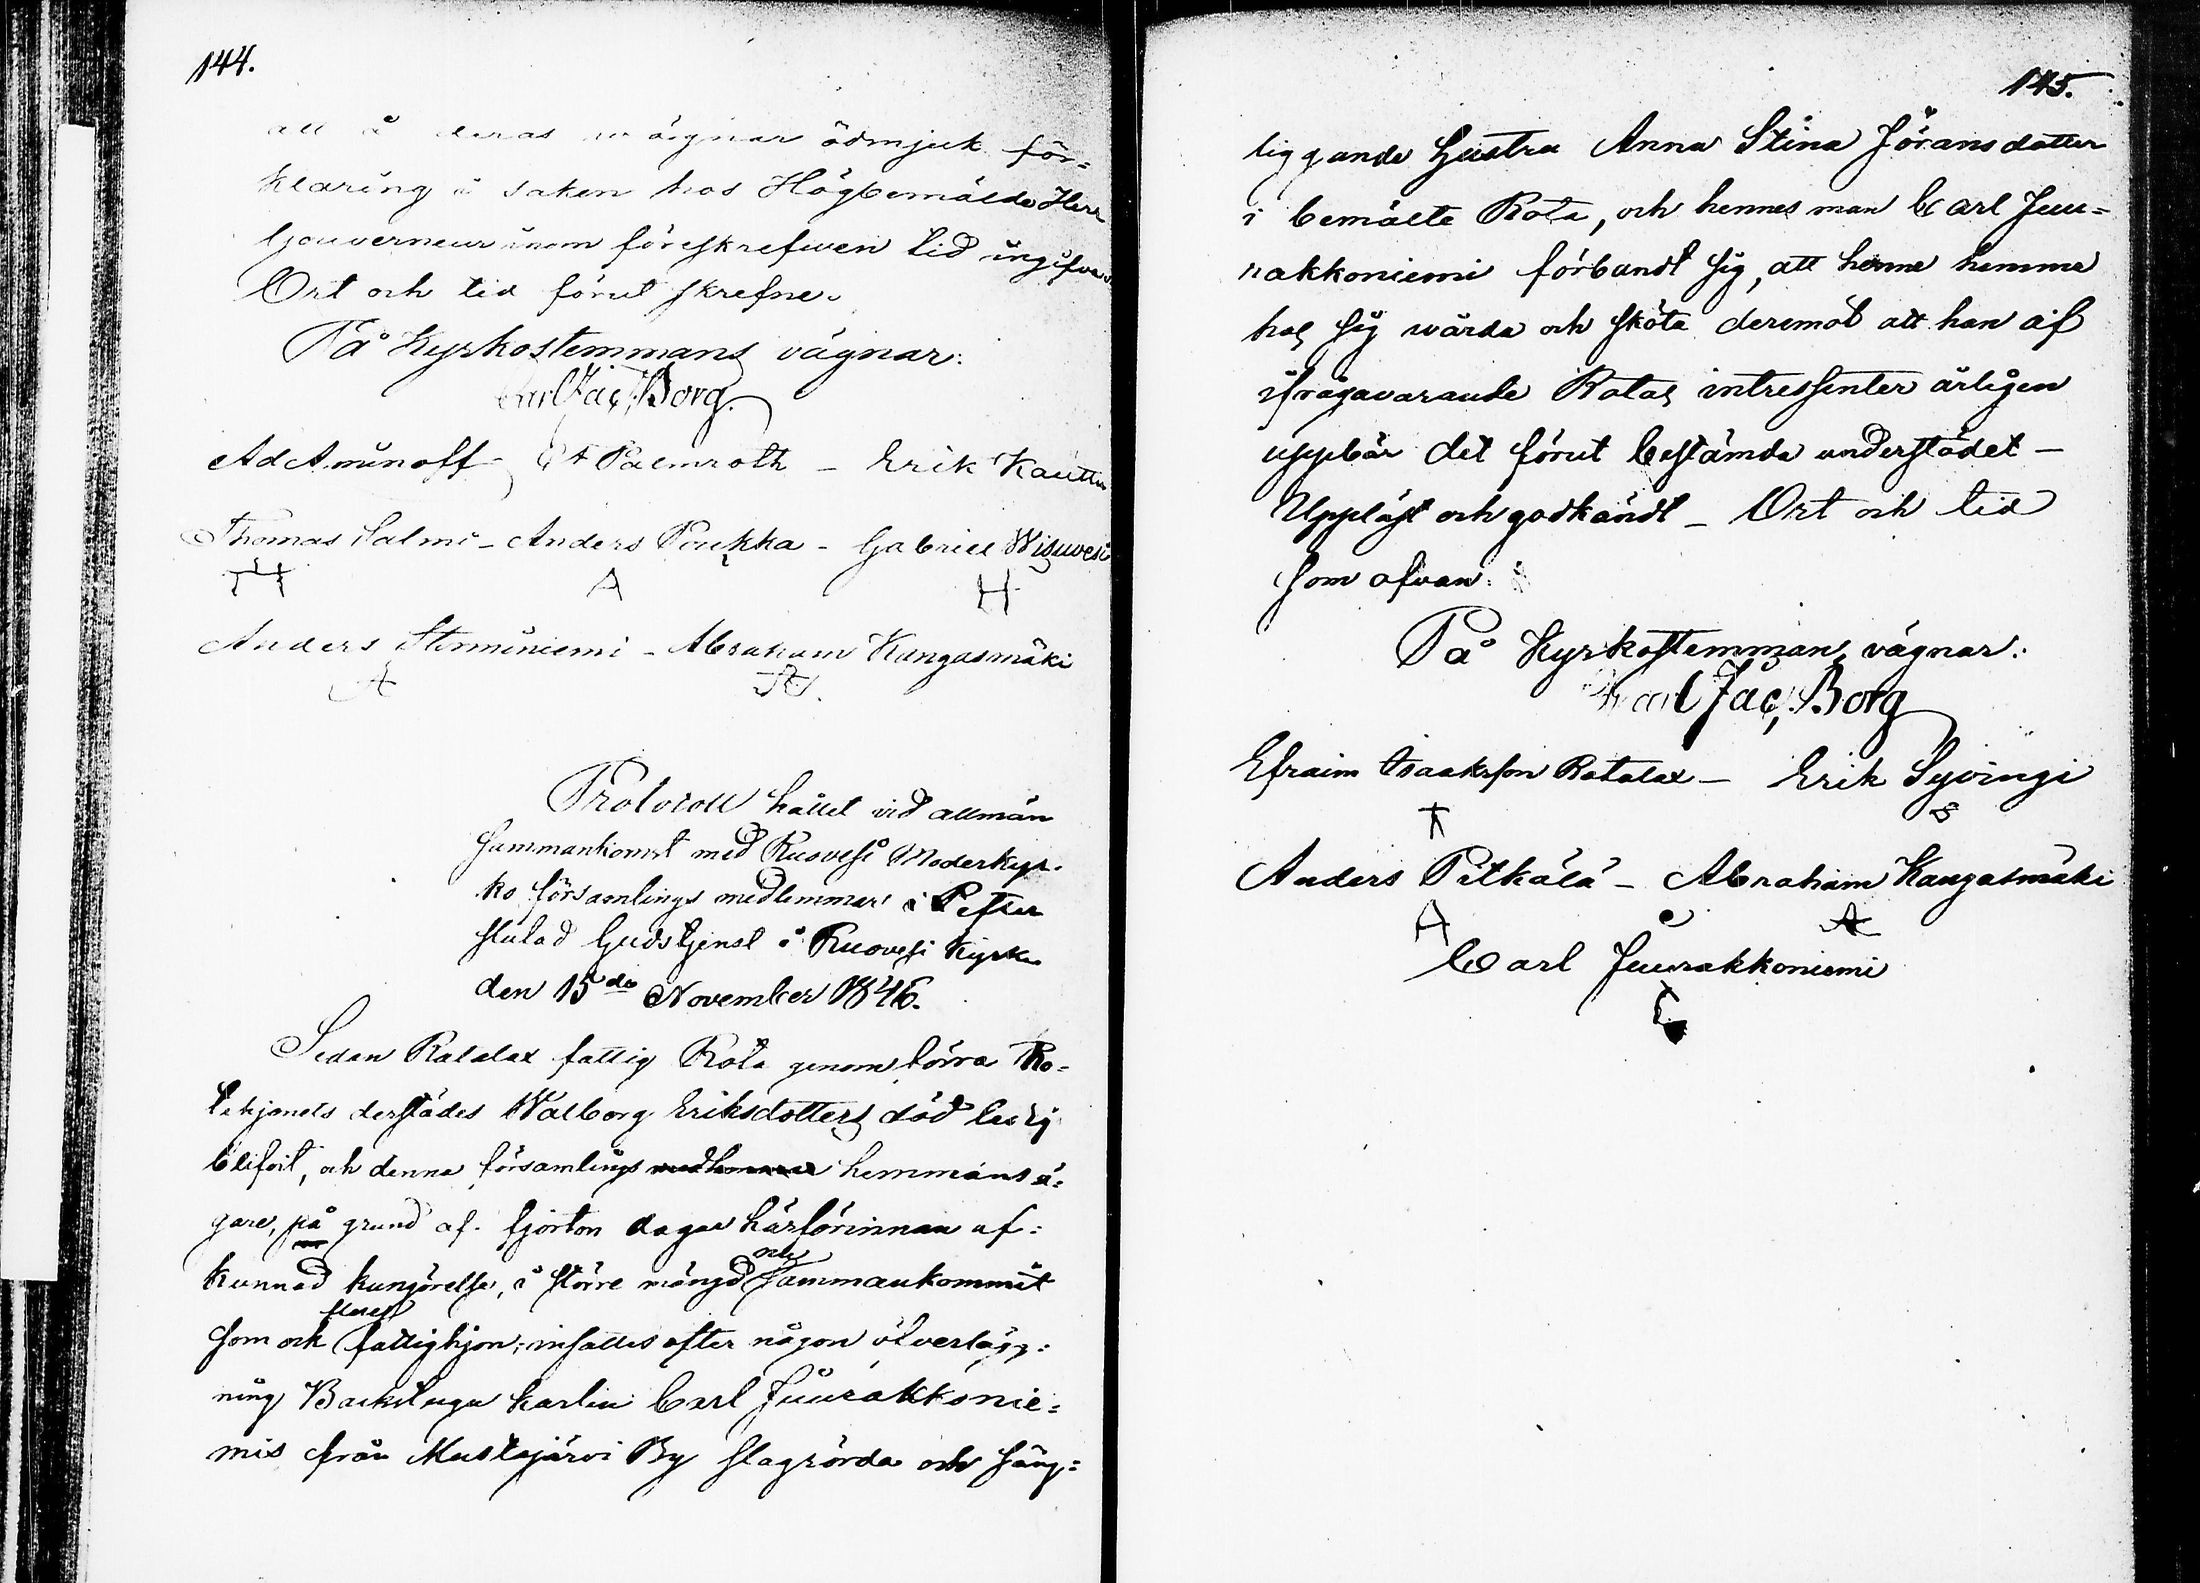 144.
att å deras wägnar ödmjuk för=
klaring i saken hos Högbemälde Herr
Gouverneur inom föreskrefwen tid ingifva.
Ort och tid förut skrefne.
På Kyrkostemmans vägnar:
Carl Jac. Borg.
Ad Aminoff Palmroth – Erik Kautt
Thomas Salmi – Anders Poukka – Gabriel Wisuvesi
A H
Anders Stenminiemi – Abraham Kangasmäki
A A
Protocoll hållet vid allmän
sammankomst med Ruovesi Moderkyr-
ko församlings medlemmar efter
slutad Gudstjenst i Ruovesi Kyrka
den 15de November 1846.
Sedan Ratalax fattig Rota genom förra Ro=
tehjonets derstädes Walborg Eriksdotters död ledig
blifvit, och denna församlings hemmans ä=
gare, på grund af fjorton dagar härförinnan af=
kunnad kungörelse, i större mängd sammankommit
som ock flere fattighjon; insattes efter någon öfverlägg=
ning Backstugu karlen Carl Juurakkonie=
mis från Mustajärvi By slagrörda och säng=
145.
liggande hustru Anna Stina Jöransdotter
i bemälte Rota, och hennes man Carl Juu=
rakkoniemi förbandt sig, att henne hemma
hos sig wårda och sköta deremot att han af
ifrågavarande Rotas intressenter årligen
uppbär det förut bestämda understödet –
Uppläst och godkändt – Ort och tid
som ofvan.
På Kyrkostemmans vägnar:
Carl Jac. Borg
Efraim Isaaksson Ratalax – Erik Syvingi
S
Anders Pitkälä – Abraham Kangasmäki
A A
Carl Juurakkoniemi
C